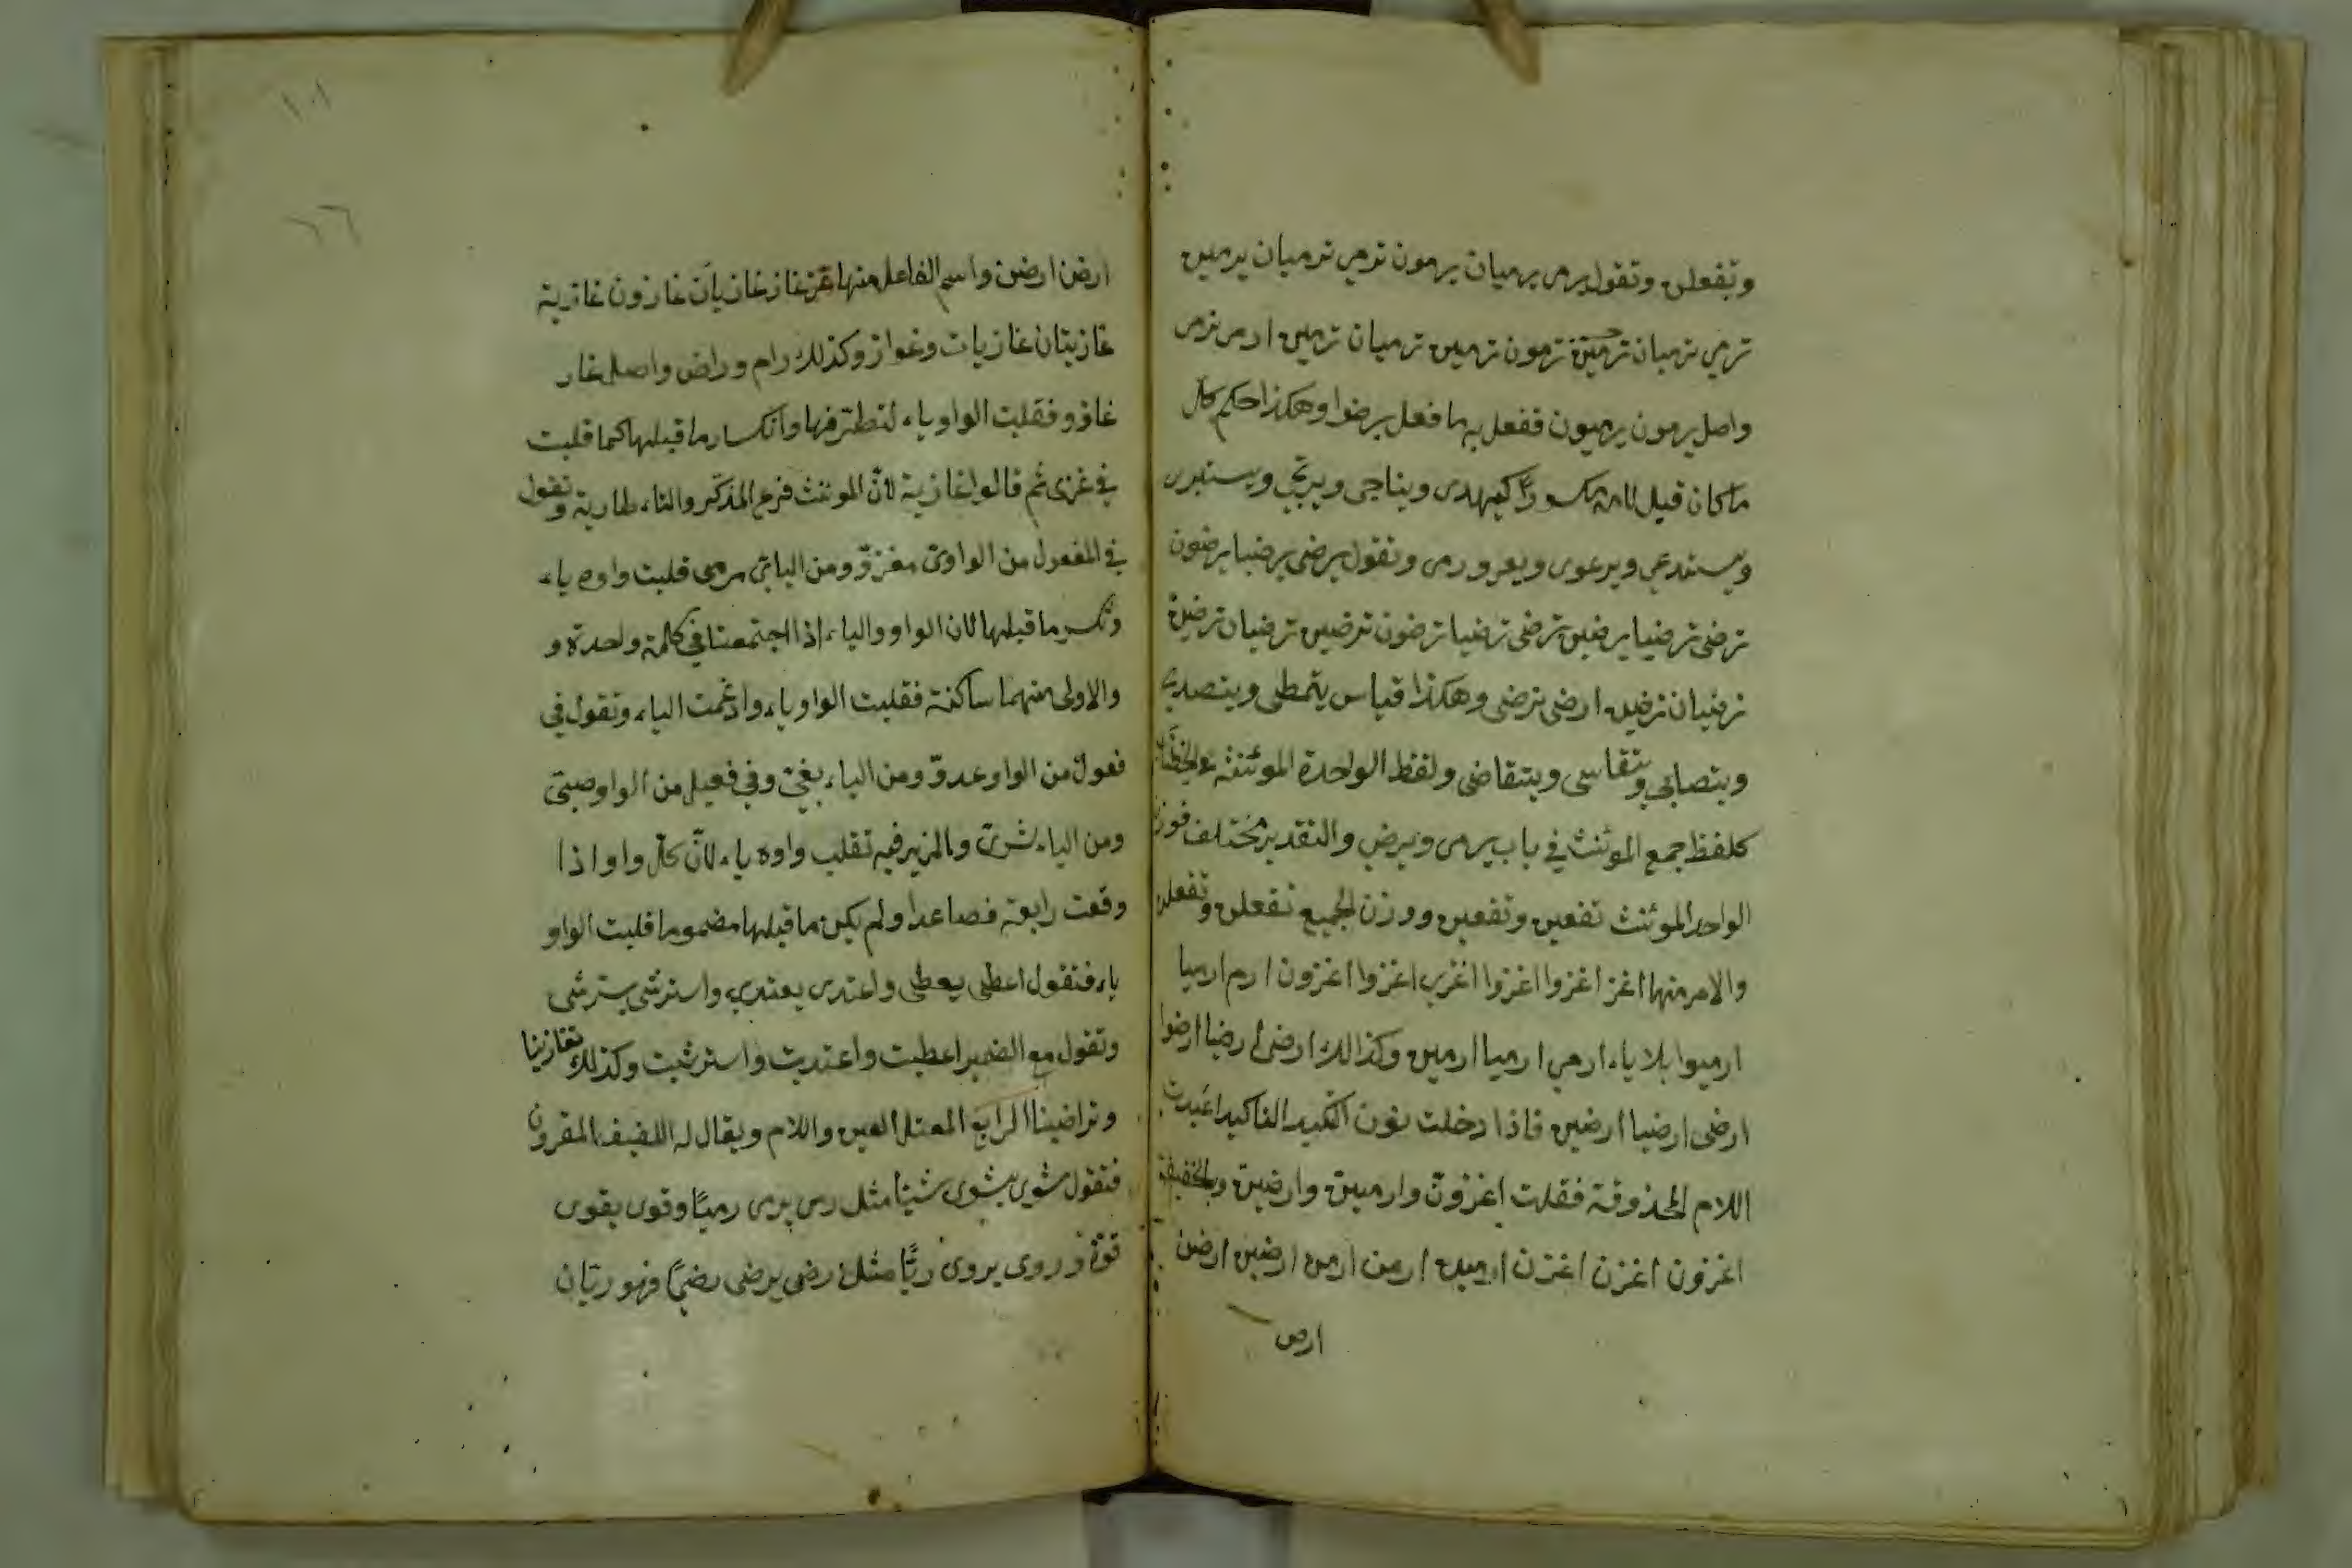 وتفعلن وتقول يرمى يرميان يرمون ترمي ترميان يرمين
ترمي ترميان ترمين ترمون ترمين ترميان ترمين ارمى نرمى
واصل يرمون يرميون ففعل به ما فعل برضوا وهكذا حكم كل
ما كان قبل لامه مكسورًا كيهدى ويناجى ويرتجي ويستبرى
ويستدعي ويرعوى ويعرورى وتقول يرضى يرضيا يرضون
ترضى ترضيا يرضين ترضى ترضيا ترضون ترضين ترضيان ترضين
ترضيان ترضين ارضى نرضى وهكذا قياس يتمطى ويتصدى
ويتصابى ويتقاسى ويتقاضى ولفظ الواحدة المؤنثة
كلفظ جمع المؤنث في باب يرمى ويرضي والتقدير مختلف فوزن
الواحد المؤنث تفعين وتفعين ووزن الجميع تفعلن وتفعلن
والامر منها اغز اغزوا اغزوا اغزي اغزوا اغزون ارم ارميا
ارميوا بلا ياء ارمي ارميا ارمين وكذالك ارضى ارضيا ارضوا
ارضى ارضيا ارضين فاذا دخلت نون التاكيد اعيدت
اللام المحذوفة فقلت اغزونّ وارمينّ وارضينّ وبالخفيفة
اغزون اغزن اغزن ارمين ارمن ارمن ارضين ارضن
ارض
١٠١
ارض ارضن واسم الفاعل منها غاز غازيان غازون غازية
غازيتان غازيات وغواز وكذلك رام وراض واصل غاز
غازو فقلبت الواو ياء لتطرفها وانكسار ما قبلها كما قلبت
في غزى ثم قالوا غازية لانّ المؤنث فرع المذكر والتاء طارية وتقول
في المفعول من الواوى مغزوّ ومن اليائي مرمى قلبت واوه ياء
وتكسر ما قبلها لان الواو والياء اذا اجتمعتا في كلمة واحدة و
والاولى منهما ساكنة فقلبت الواو ياء وادغمت الياء وتقول في
فعول من الواو عدوّ ومن الياء بغيّ وفي فعيل من الواو صبيّ
ومن الياء شرىّ والمزيد فيه تقلب واوه ياء لانّ كلّ واو اذا
وقعت رابعة فصاعدا ولم يكن ما قبلها مضموما قلبت الواو
ياء فتقول اعطى يعطى واعتدى يعتدي واسترشى يسترشى
وتقول مع الضمير اعطيت واعتديت واسترشيت وكذلك تغازينا
وتراضينا الرابع المعتل العين واللام ويقال له اللفيف المقرون
فتقول شوى يشوى شيئا مثل رمى يرمى رميًا وقوى يقوى
قوّة وروى يروى ريًّا مثل رضي يرضى رضيًا فهو ريّان